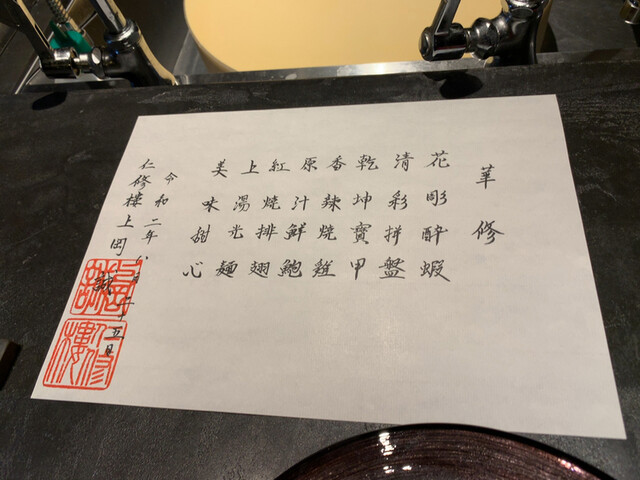 華修
花彫酔蝦
清彩拼盤
乾坤寶甲
香辣焼雞
原汁鮮鮑
紅焼排翅
上湯光麺
美味甜心
令和二年八月二十五日
仁修樓上岡誠